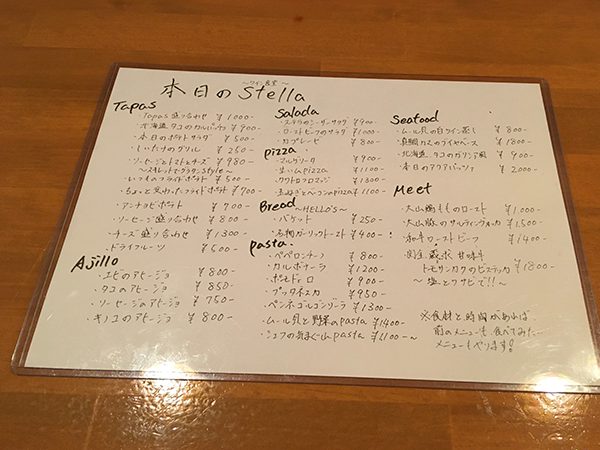 〜ワイン食堂〜
本日のStella
Tapas
・Tapas盛り合わせ ¥1000-
・北海道タコのカルパッチョ ¥900-
・本日のポテトサラダ ¥500-
・しいたけのグリル ¥250-
・ソーセージとトマトとチーズ ¥980-
〜スキレットでグラタンstyle〜
・いつものフライドポテト ¥500-
・ちょっと変わったフライドポテト ¥700
・アンチョビポテト ¥700-
・ソーセージ盛り合わせ ¥800-
・チーズ盛り合わせ ¥1300-
・ドライフルーツ ¥500-
Ajillo
・エビのアヒージョ ¥800-
・タコのアヒージョ ¥850-
・ソーセージのアヒージョ ¥750-
・キノコのアヒージョ ¥800-
Salada
・ステラのシーザーサラダ ¥900-
・ローストビーフのサラダ ¥1100-
・カプレーゼ ¥800-
pizza
・マルゲリータ ¥900-
・生ハムpizza ¥1100-
・クワトロフロマッジ ¥1300-
・玉ねぎとベーコンのpizza ¥1100
Bread 〜HELLO'S〜
・バケット ¥250-
・ガーリックトースト ¥400-
pasta
・ペペロンチーノ ¥800-
・カルボナーラ ¥1200-
・ポモドーロ ¥900-
・プッタネスカ ¥950-
・ペンネゴルゴンゾーラ ¥1300-
・ムール貝と野菜のpasta ¥1400-
・シェフの気まぐれpasta ¥1100〜
Seafood
・ムール貝の白ワイン蒸し ¥800-
・真鯛カマのブイヤベース ¥1800-
・北海道タコのガリシア風 ¥900-
・本日のアクアパッツァ ¥2000-
Meet
・大山鶏もものロースト ¥1000-
・大山豚のサルティンヴォッカ ¥1500-
・和牛ローストビーフ ¥1400-
トモサンカクのビステッカ ¥1800-
〜塩とワサビで!!〜
※食材と時間があれば
前のメニューも、食べてみた…
メニューもやります!